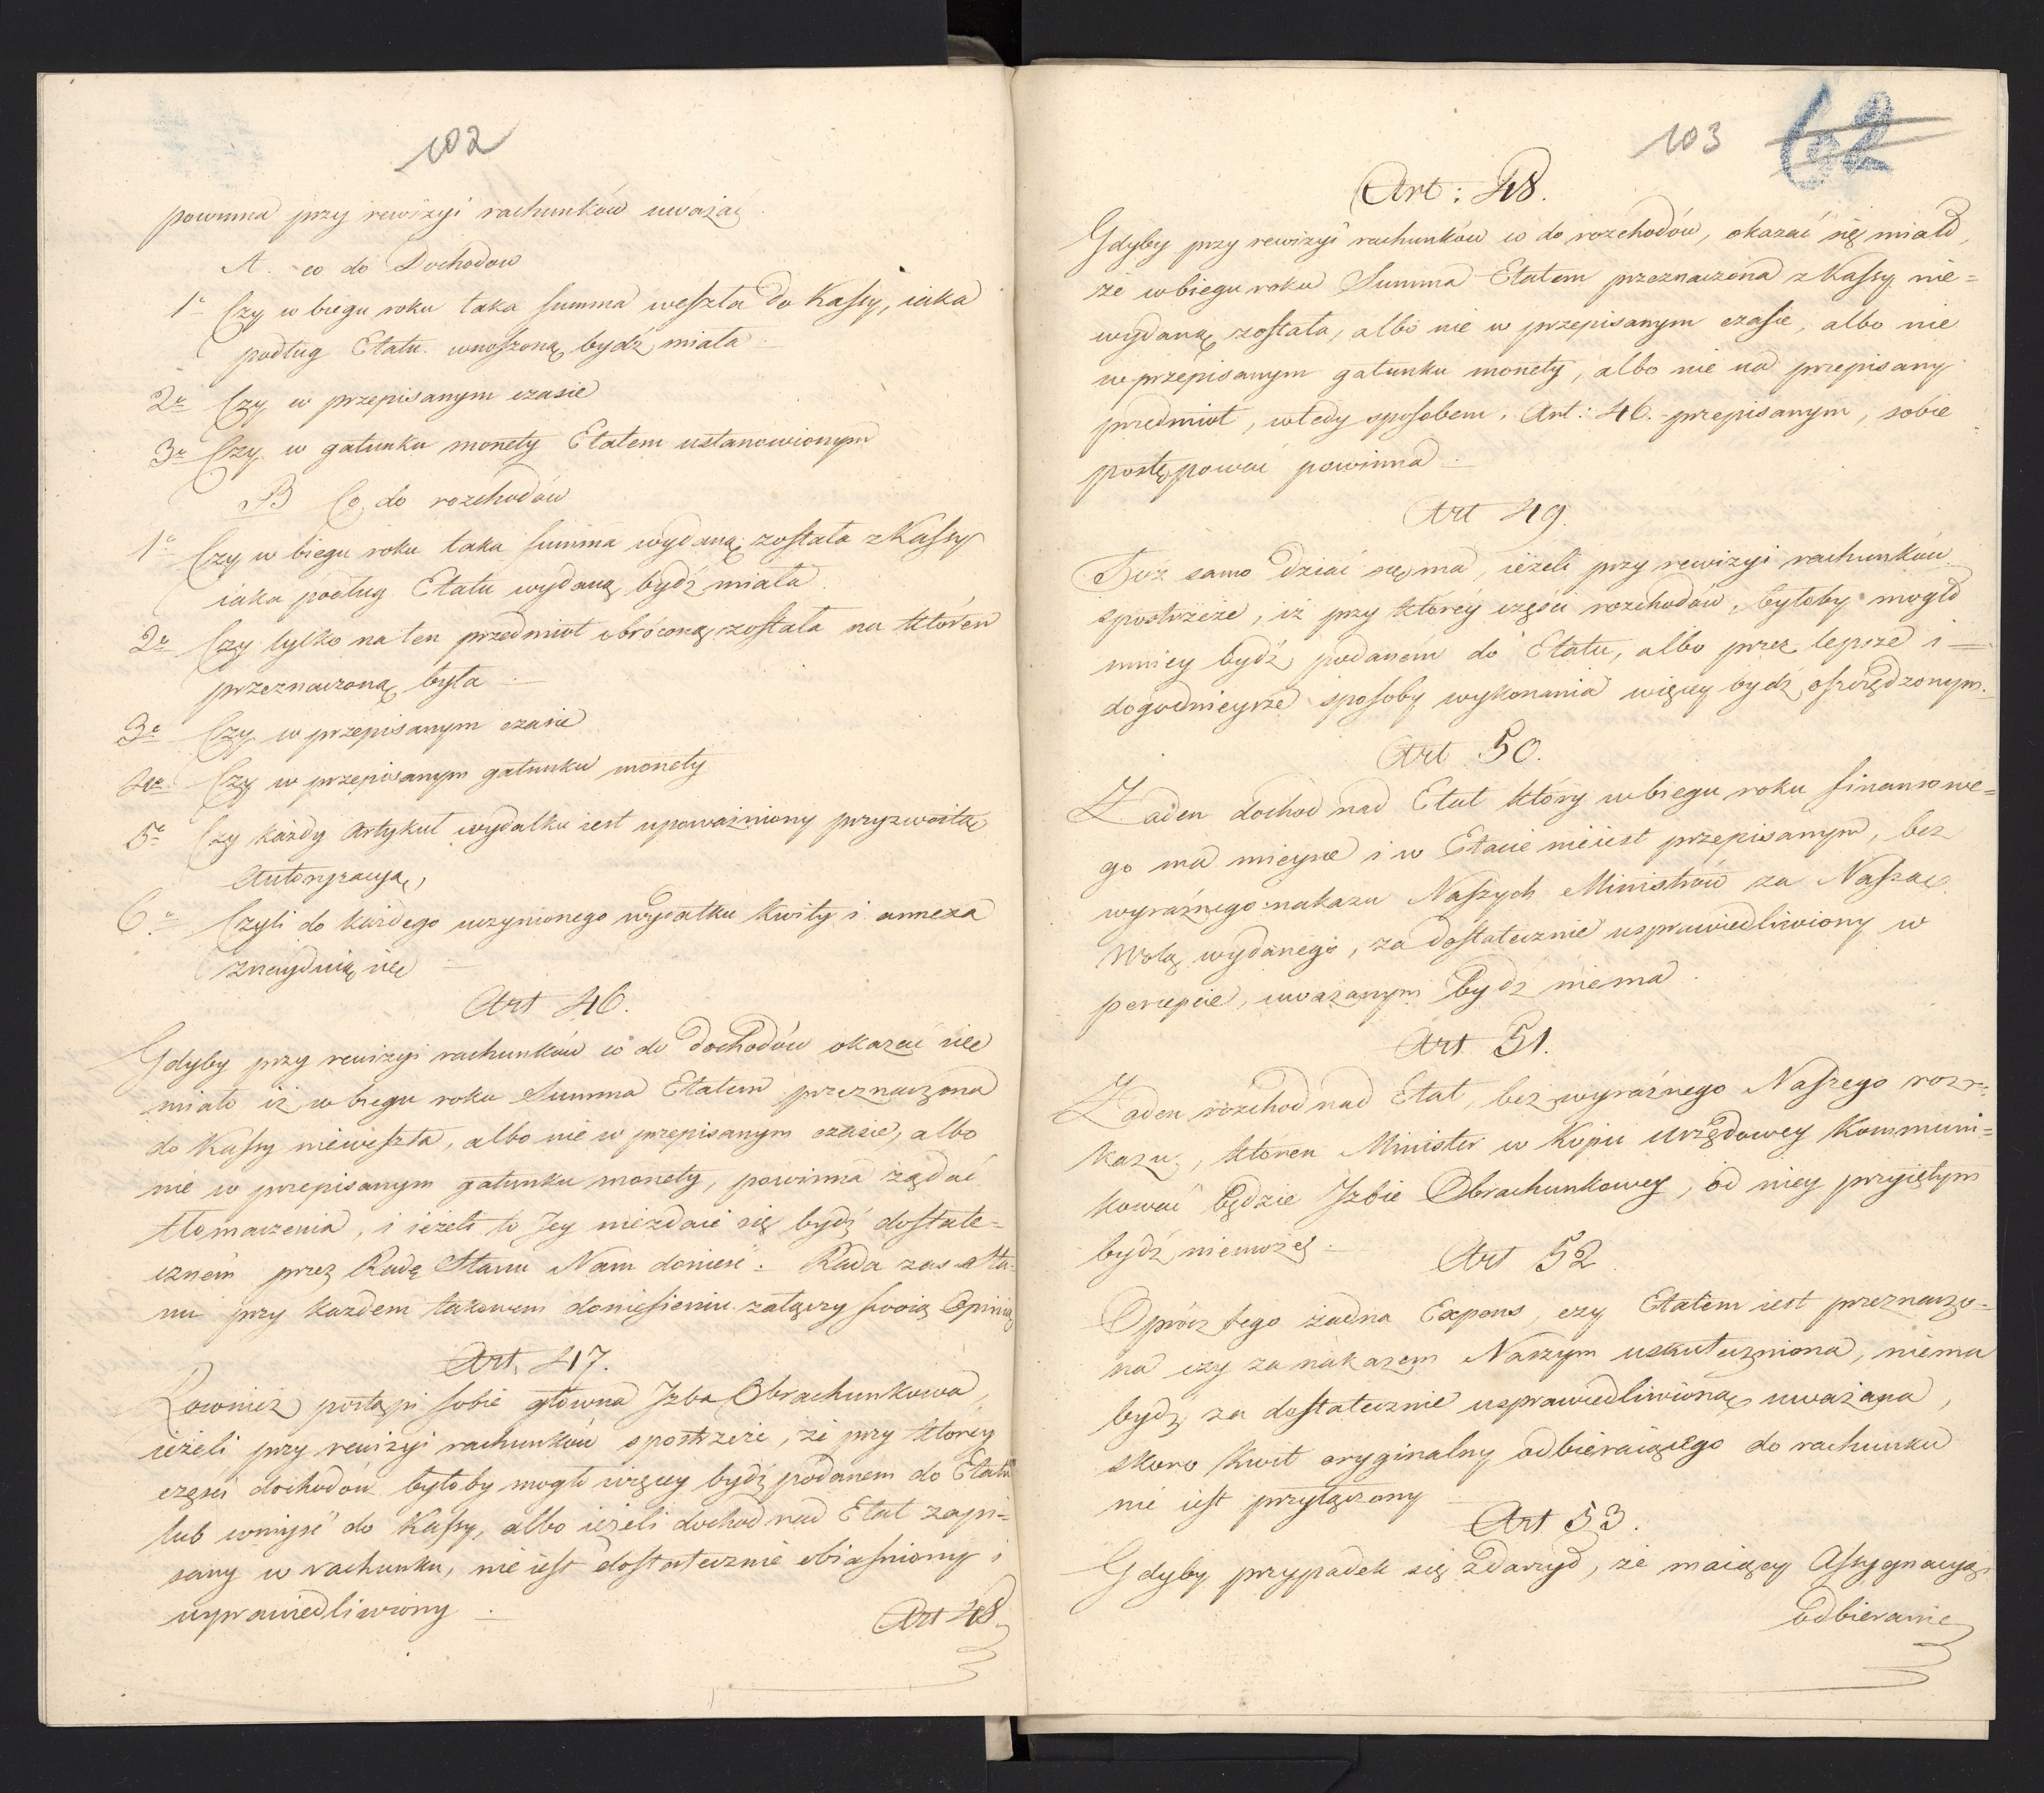 102
powinna przy rewizyi rachunków uważać.
A. co do Dochodow
1° Czy w biegu roku taka summa weszła do Kassy, iaka
podług Etatu wnoszoną bydź miała
2° Czy w przepisanym czasie
3° Czy w gatunku monety Etatem ustanowionym
B Co do rozchodów
1° Czy w biegu roku taka summa wydaną została z Kassy
iaka podług Etatu wydaną bydź miała
2° Czy tylko na ten przedmiot obróconą została na któren
przeznaczoną była
3° Czy w przepisanym czasie
4° Czy w przepisanym gatunku monety
5° Czy każdy Artykuł wydatku iest upoważniony przyzwoitą
Autoryzacyą,
6° Czyli do każdego uczynionego wydatku kwity i annexa
znayduią się
Art 46.
Gdyby przy rewizyi rachunków co do dochodów okazać się
miało iż w biegu roku Summa Etatem przeznaczona
do Kassy nieweszła, albo nie w przepisanym czasie, albo
nie w przepisanym gatunku monety, powinna żądać
tłomaczenia, i ieżeli to Jey niezdaie się bydź dostate=
cznem przez Radę Stanu Nam donieść. Rada zas Sta=
nu przy każdem takowem doniesieniu załączy swoią Opinią
Art. 47.
Rownież postąpi sobie główna Izba Obrachunkowa,
ieżeli przy rewizyi rachunków spostrzeże, że przy którey
części dochodów byłoby mogło więcey bydź podanem do Etatu
lub wniyść do Kassy, albo ieżeli dochod nad Etat zapi=
sany w rachunku, nie iest dostatecznie obiasniony i
usprawiedliwiony
Art 48.
103 62
Art: 48.
Gdyby przy rewizyi rachunków co do rozchodów, okazać się miało,
że w biegu roku Summa Etatem przeznaczona z Kassy nie=
wydaną została, albo nie w przepisanym czasie, albo nie
w przepisanym gatunku monety, albo nie na przepisany
przedmiot, wtedy sposobem, Art: 46. przepisanym, sobie
postępować powinna
Art 49.
Toż samo dziać się ma, ieżeli przy rewizyi rachunków
spostrzeże, iż przy którey części rozchodów, byłoby mogło
mniey bydź podanem do Etatu, albo przez lepsze i
dogodnieysze sposoby wykonania więcey bydź oszczędzonym.
Art 50.
Żaden dochod nad Etat który w biegu roku finansowe=
go ma mieysce i w Etacie nieiest przepisanym, bez
wyraźnego nakazu Naszych Ministrów za Naszą
Wolą wydanego, za dostatecznie usprawiedliwiony w
percepcie, uważanym bydź niema.
Art. 51.
Żaden rozchod nad Etat, bez wyraźnego Naszego roz=
kazu, któren Minister w Kopii urzędowey kommuni=
kować będzie Izbie Obrachunkowey, od niey przyiętym
bydź niemoże
Art 52.
Oprócz tego żadna Expens, czy Etatem iest przeznaczo=
na czy za nakazem Naszym uskuteczniona, niema
bydź za dostatecznie usprawiedliwioną uważana,
skoro kwit oryginalny odbieraiącego do rachunku
nie iest przyłączony
Art 53.
Gdyby przypadek się zdarzył, że maiący Assygnacyą
odbieranie